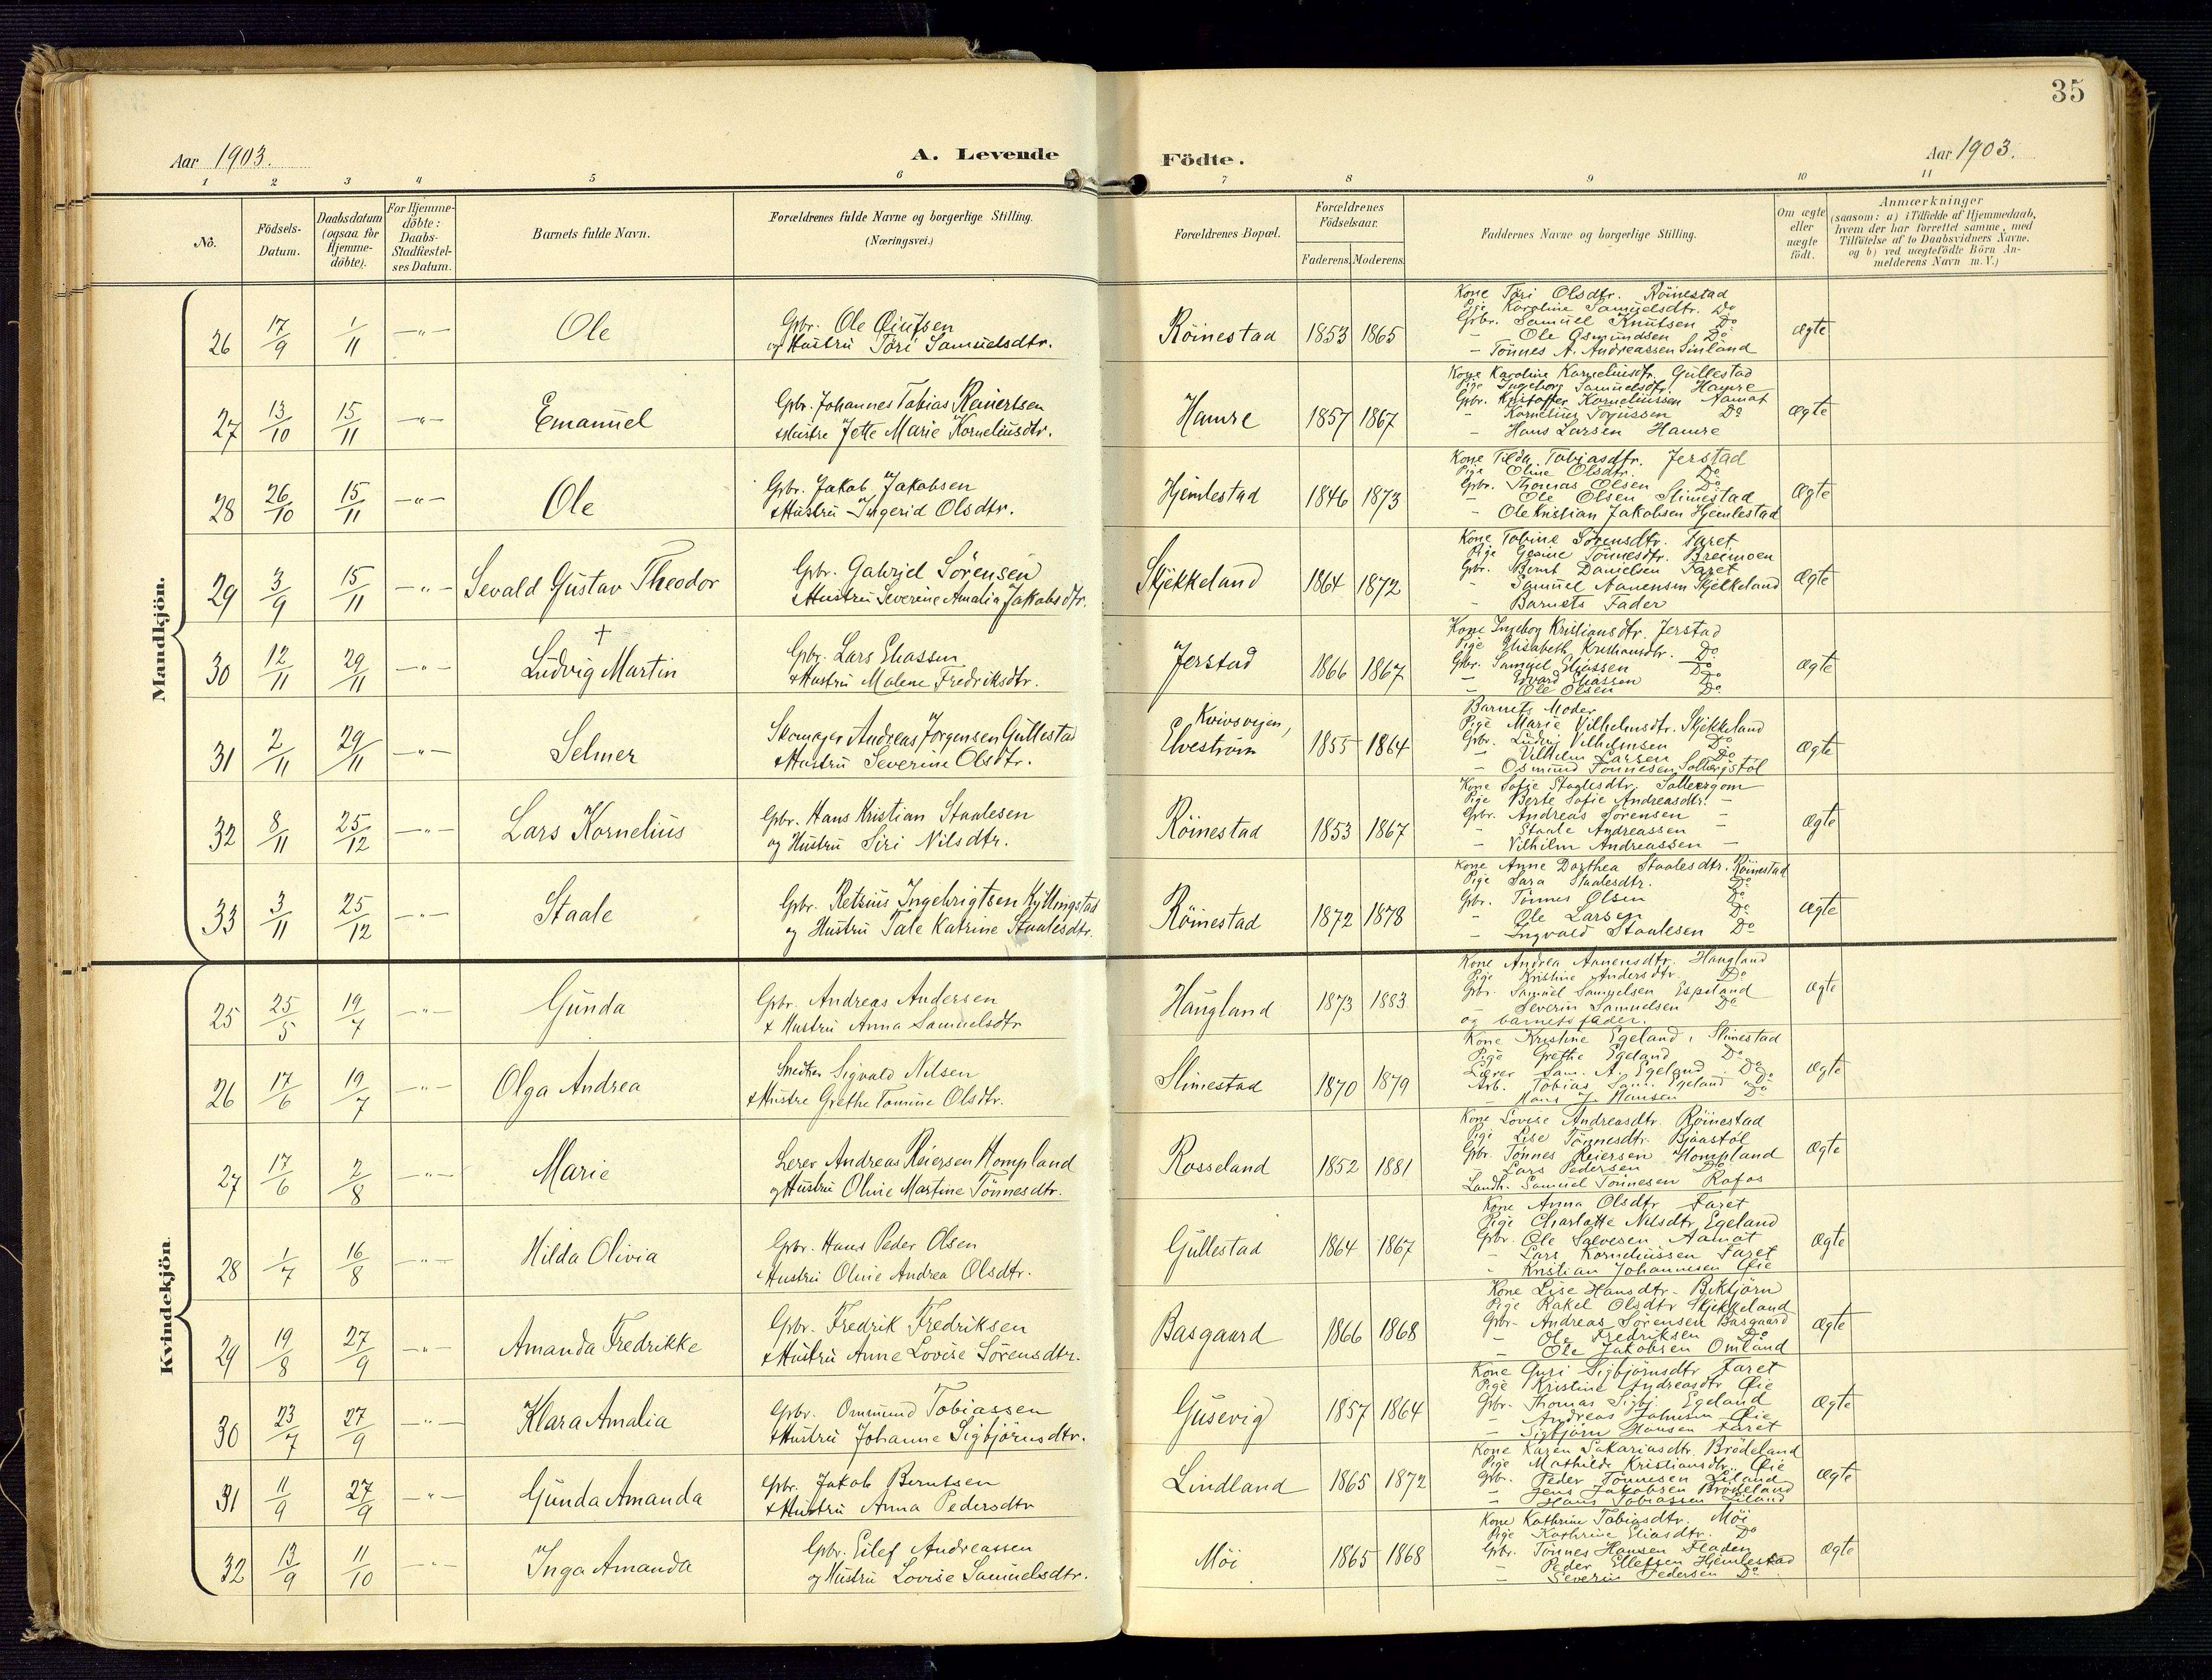 35
Aar 1903.
A. Levende
Födte.
Aar 1903.
1 2 3 4 5 6 7 8 9 10 11
No.
Födsels-Datum.
Daabsdatum (ogsaa for Hjemme-döbte).
For Hjemme-döbte: Daabs-Stadfæstel-ses Datum.
Barnets fulde Navn.
Forældrenes fulde Navne og borgerlige Stilling.
(Næringsvei.)
Forældrenes Bopæl.
Forældrenes Födselsaar.
Faderens. Moderens.
Faddernes Navne og borgerlige Stilling.
Om ægte eller uægte födt.
Anmærkninger
(saasom: a) i Tilfælde af Hjemmedaab,
hvem der har forrettet samme, med
Tilföielse af to Daabsvidners Navne.
og b) ved uægtefödte Börn An-
melderens Navn m. V.)
Mandkjön.
26 17/9 1/11 -"- Ole
Gbr. Ole
og Hustru Töri Samuelsdtr.
Röinestad 1853 1865
Kone Töri Olsdtr. Röinestad
Pige Karoline Samuelsdtr. Do
Gbr. Samuel Knutsen Do
- Ole Osmundsen Do
- Tönnes A. Andreassen Sinland
ægte
27 13/10 15/11 -"- Emanuel
Gbr. Johannes Tobias Reinertsen
& Hustru Jette Marie Korneliusdtr.
Hamre 1857 1867
Kone Karoline Korneliusdtr. Gullestad
Pige Ingeborg Samuelsdtr. Hamre
Gbr. Kristoffer Korneliussen Aamot
- Kornelius Torjussen Do
- Hans Larsen Hamre
ægte
28 26/10 15/11 -"- Ole
Gbr. Jakob Jakobsen
& Hustru Ingerid Olsdtr.
Hjemlestad 1846 1873
Kone Tilda Tobiasdtr. Jerstad
Pige Oline Olsdtr. Do
Gbr. Thomas Olsen Do
- Ole Olsen Slimestad
- Ole Kristian Jakobsen Hjemlestad
ægte
29 3/9 15/11 -"- Sevald Gustav Theodor
Gbr. Gabriel Sörensen
& Hustru Severine Amalia Jakobsdtr.
Skjekkeland 1864 1872
Kone Tobine Sörensdtr. Faret
Pige Gesine Tönnesdtr. Breimoen
Gbr. Bernt Danielsen Faret
- Samuel Aanensen Skjekkeland
- Barnets Fader
ægte
30 12/11 29/11 -"- † Ludvig Martin
Gbr. Lars Eliassen
& Hustru Malene Fredriksdtr.
Jerstad 1866 1867
Kone Ingebog Kristiansdtr. Jerstad
Pige Elisabeth Kristiansdtr. Do
Gbr. Samuel Eliassen Do
- Edvard Eliassen Do
- Ole Olsen Do
ægte
31 2/11 29/11 -"- Selmer
Skomager Andreas Jörgensen Gullestad
& Hustru Severine Olsdtr.
Kvivsvejen,
Elveström 1855 1864
Barnets Moder
Pige Marie Vilhelmsdtr. Skjekkeland
Gbr. Ludvig Vilhelmsen Do
- Vilhelm Larsen Do
- Osmund Tönnesen
ægte
32 8/11 25/12 -"- Lars Kornelius
Gbr. Hans Kristian Staalesen
og Hustru Siri Nilsdtr.
Röinestad 1853 1867
Kone Sofie Staalesdtr.
Pige Berte Sofie Andreasdtr. -
Gbr. Andreas Sörensen -
- Staale Andreassen -
- Vilhelm Andreassen -
ægte
33 3/11 25/12 -"- Staale
Gbr. Retsius Ingebrigtsen Kyllingstad
og Hustru Tale Katrine Staalesdtr.
Röinestad 1872 1878
Kone Anne Dorthea Staalesdtr. Röinestad
Pige Sara Staalesdtr. Do
Gbr. Tönnes Olsen Do
- Ole Larsen Do
- Ingvald Staalesen Do
ægte
Kvindekjön.
25 25/5 19/7 -"- Gunda
Gbr. Andreas Andersen
& Hustru Anna Samuelsdtr
Haugland 1873 1883
Kone Andrea Aanensdtr. Haugland
Pige Kristine Andersdtr. Do
Gbr. Samuel Samuelsen Espeland
- Severin Samuelsen Do
og barnets fader.
ægte
26 17/6 19/7 -"- Olga Andrea
Snedker Sigvald Nilsen
& Hustru Grethe Tomine Olsdtr.
Slimestad 1870 1879
Kone Kristine Egeland, Slimestad
Pige Grethe Egeland Do
Lærer Sam. A. Egeland Do
Arb. Tobias Sam. Egeland Do
- Hans J. Hansen Do
ægte
27 17/6 2/8 -"- Marie
Lærer Andreas Reiersen Hompland
og Hustru Oline Martine Tönnesdtr.
Rosseland 1852 1881
Kone Lovise Andreasdtr. Röinestad
Pige Lise Tönnesdtr. Bjaastöl
Gbr. Tönnes Reiersen Hompland
- Lars Pedersen Do
Landh. Samuel Tönnesen Rafos
ægte
28 1/7 16/8 -"- Hilda Olivia
Gbr. Hans Peder Olsen
& Hustru Oline Andrea Olsdtr.
Gullestad 1864 1867
Kone Anna Olsdtr Faret
Pige Charlotte Nilsdtr Egeland
Gbr. Ole Salvesen Aamot
- Lars Korneliussen Faret
- Kristian Johannesen Øie
ægte
29 19/8 27/9 -"- Amanda Fredrikke
Gbr. Fredrik Fredriksen
& Hustru Anne Lovise Sörensdtr.
Basgaard 1866 1868
Kone Lise Hansdtr. Birktjörn
Pige Rakel Olsdtr Skjekkeland
Gbr. Andreas Sörensen Basgaard
- Ole Fredriksen Do
- Ole Jakobsen Omland
ægte
30 23/7 27/9 -"- Klara Amalia
Gbr. Ommund Tobiassen
& Hustru Johanne Sigbjörnsdtr.
Gusevig 1857 1864
Kone Guri Sigbjörnsdtr Faret
Pige Kristine Andreasdtr Øie
Gbr. Thomas Sigbj. Egeland
- Andreas Johnsen Øie
- Sigbjörn Hansen Faret
ægte
31 11/9 27/9 -"- Gunda Amanda
Gbr. Jakob Berntsen
& Hustru Anna Pedersdtr
Lindland 1865 1872
Kone Karen Sakariasdtr. Brödeland
Pige Mathilde Kristiansdtr. Øie
Gbr. Peder Tönnesen Liland
- Jens Jakobsen Brödeland
- Hans Tobiassen Liland
ægte
32 13/9 11/10 -"- Inga Amanda
Gbr. Eilef Andreassen
og Hustru Lovise Samuelsdtr.
Möi 1865 1868
Kone Kathrine Tobiasdtr. Möi
Pige Kathrine Eliasdtr. Do
Gbr. Tönnes Hansen Fladen
- Peder Ellefsen Hjemlestad
- Severin Pedersen Do
ægte